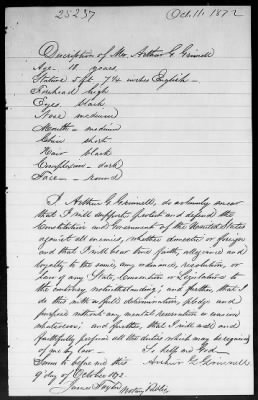 25237
Oct. 11. 1872
Description of Mr. Arthur G. Grinnell
Age - 18 years
Stature 5 ft. 7 3/4 inches English -
Forehead high
Eyes black
Nose medium
Mouth - medium
Chin short
Hair black
Complexion - dark
Face - round
I, Arthur G. Grinnell, do solemnly swear
that I will support, protect and defend the
Constitution and Government of the United States
against all enemies, whether domestic or foreign
and that I will bear true faith, allegiance and
loyalty to the same, any ordinance, resolution, or
law of any State, Convention or Legislature to
the contrary notwithstanding; and further, that I
do this with a full determination, pledge and
purpose without any mental reservation or evasion
whatsoever; and further, that I will well and
faithfully perform all the duties which may be required
of me by law - So help me God -
Sworn to before me this Arthur G. Grinnell
9 day of October 1872
James Taylor Notary Public